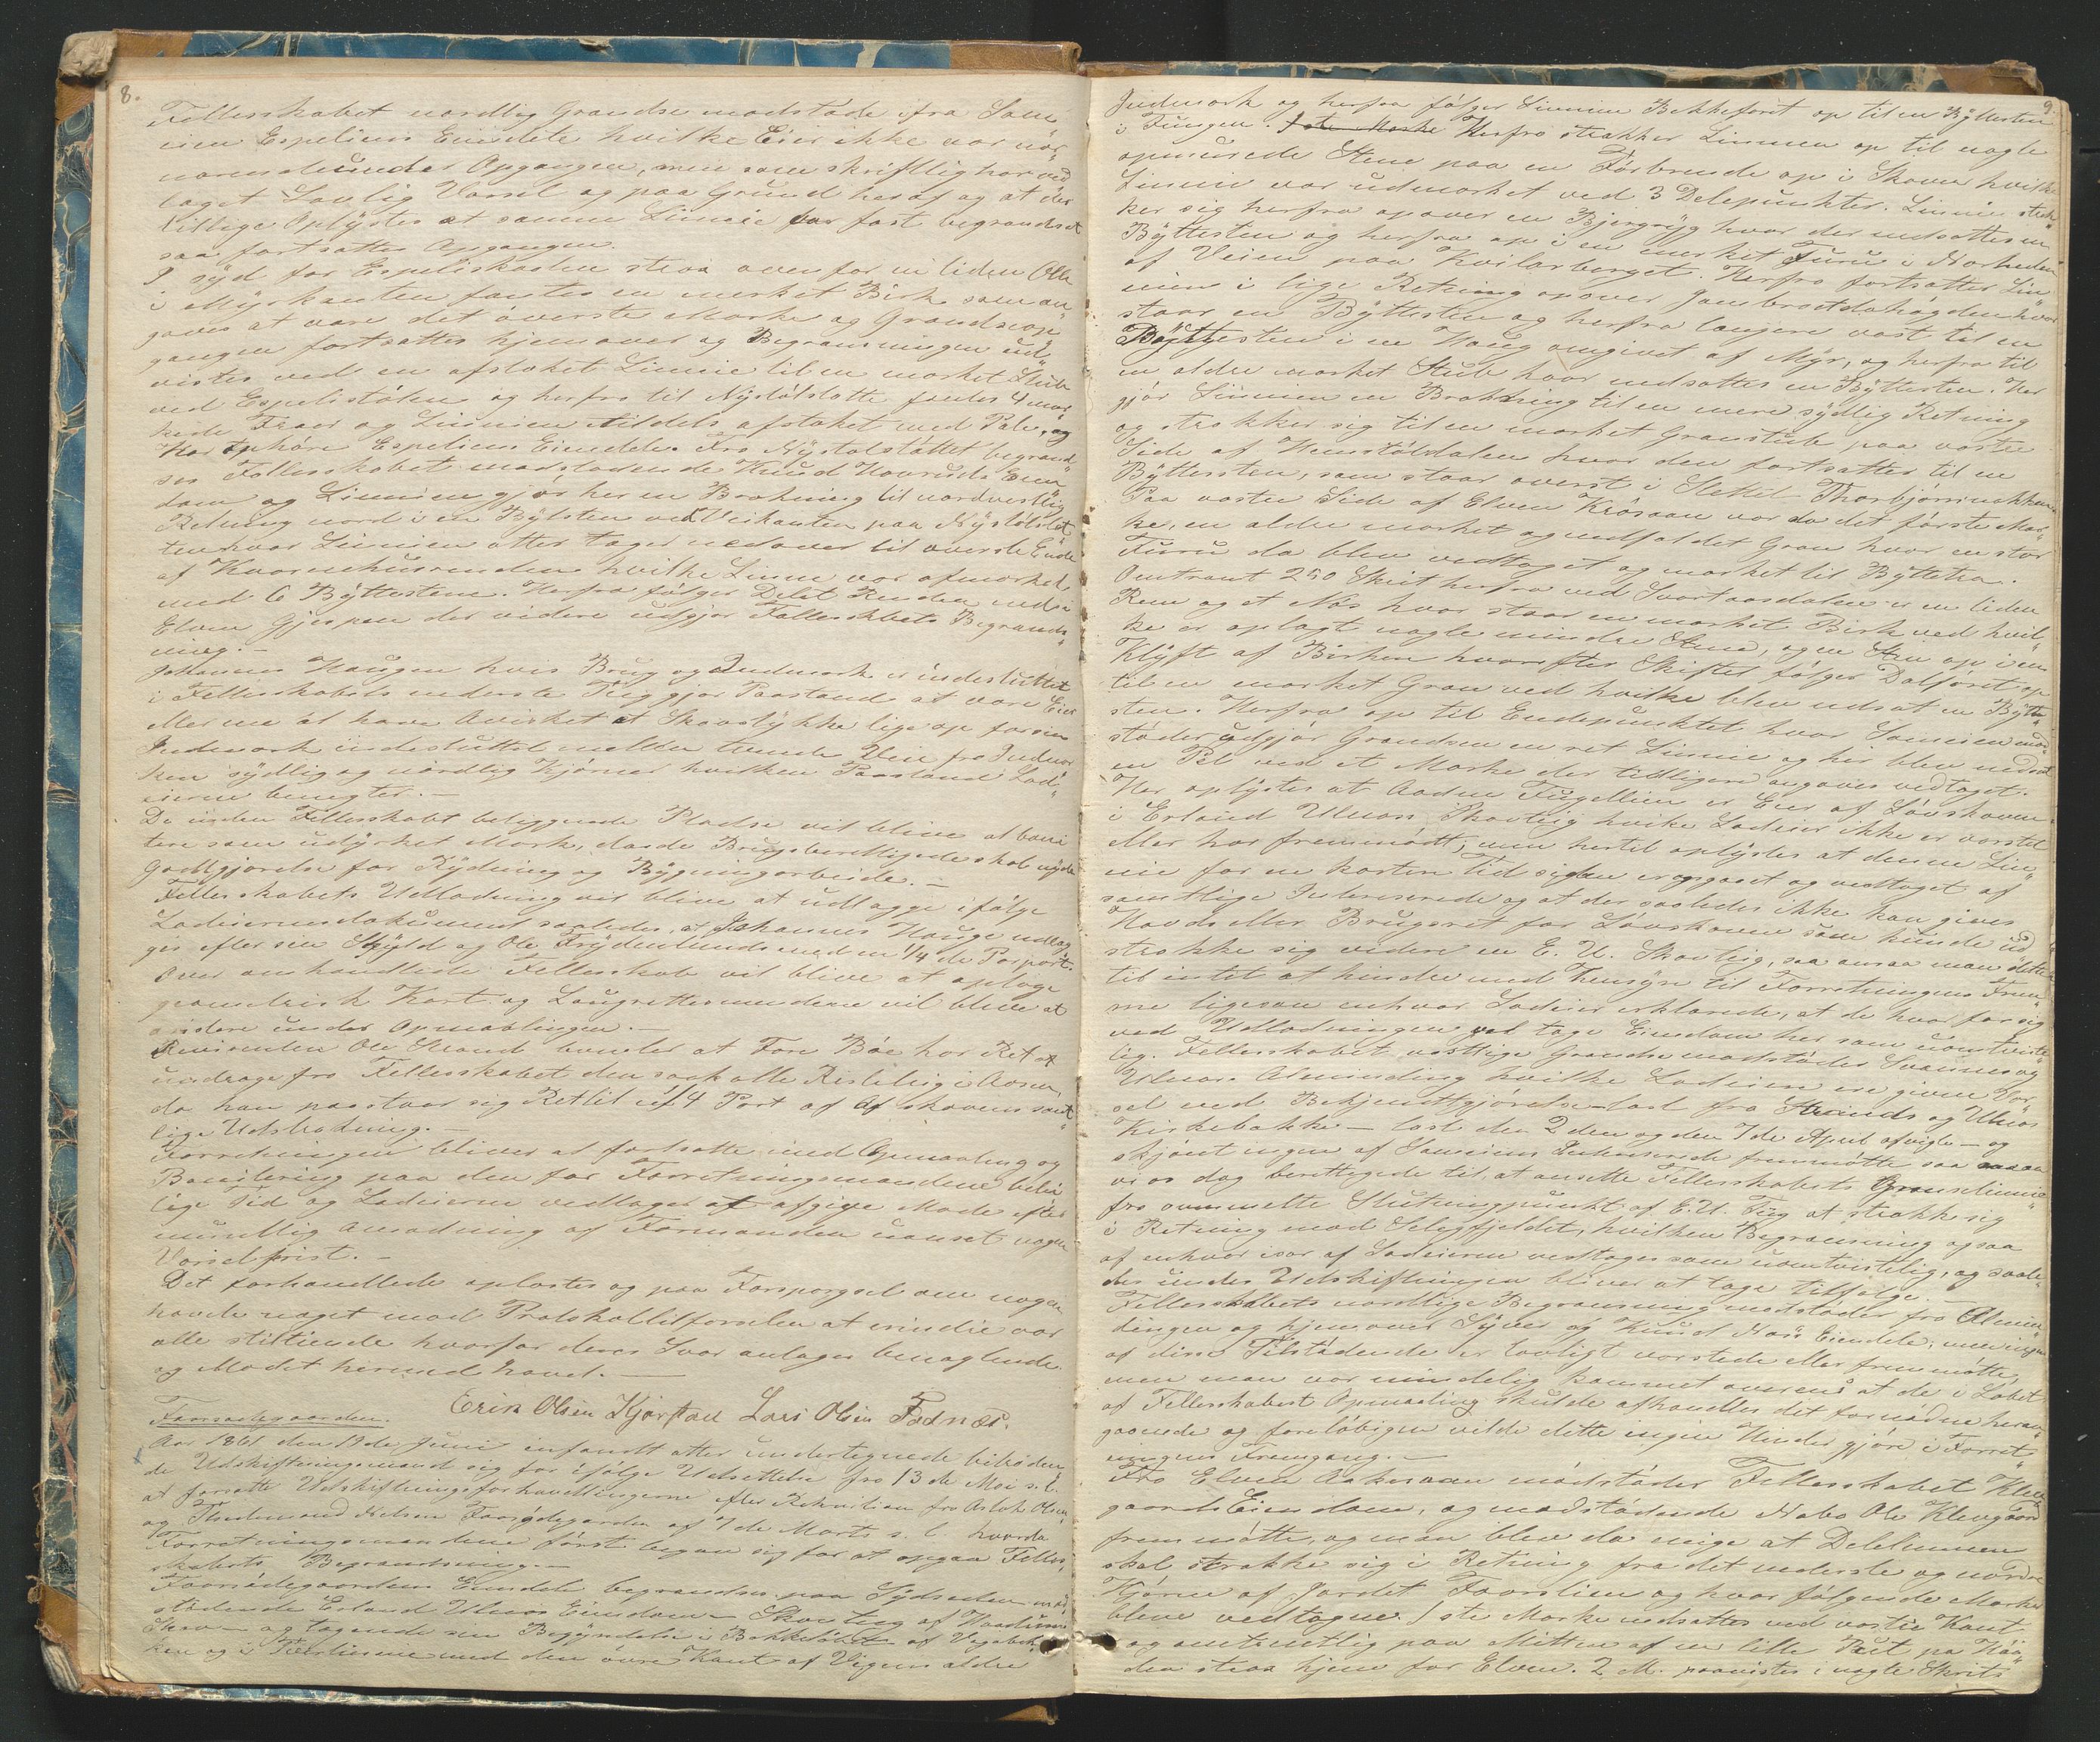 8.
Fellesskabet nordlig Grandse modstöde ifra Som„
men Espeliens Eiendele hvilke Eier ikke var nær„
værende under Opgangen, men som skriftlig har ved
taget Lovlig Varsel og paa Grund heraf og at der
tillige Oplÿstes at samme Linnie var fast begrandset
saa fortsattes Opgangen.
I sÿd for Espeliskaslen straa ovenfor en liden Olle
i Mÿrkanten fantes en merket Birk som an„
gaves at være det överste Mærke og Grandseop„
gangen fortsattes hjemover og Begrænsningen ud„
vistes ved en afstaket Linnie til en mærket Stub
ved Espelistölen og herfra til Nÿstölslætte fantes 4 mær„
kede Træer og Linnien tildels afstaket med Pæle, og
Her ophöre Espeliens Eiendele. Fra Nÿstölslættet begrand„
ses Fellesskabet modstödende Knud Hovruds Eien„
dom og Linnien gjör her en Brækning til nordvestlig
Retning nord i en Bÿtesten ved Veikanten paa Nÿstölslet
ten hvor Linnien atter tager nedover til överste Ende
af Kværnehusrenden hvilke Linnie var afmærket
med 6 Bÿttestene. Herfra fölger Delet Renden ned i
Elven Gjespen der videre udgjör Fellesskabets Begrænds„
ning.—
Johannes Haugen hvis Brug og Indmark er indesluttet
i Fellesskabets nederste Teig gjör Paastand at være Eier
eller me at have Avirket et Skovstÿkke lige op for sin
Indmark indesluttet mellem tvende Veie fra Indmar
ken sÿdlig og nordlig Hjörner hvilken Paastand Lod„
eierne benegter.—
De inden Fellesskabt beliggende Pladse vil blive at boni
tere som udÿrket Mark, da de Brugsberettigede skal nÿde
Godtgjörelse for Rÿdning og Bÿgningsarbeide.—
Fellesskabets Udlodning vil blive at udlægge ifölge
Lodeiernes dokument saaledes, at Johannes Hauge udlæg
ges efter sin Skÿld og Ole Frÿdenlunds med en 1/4 de Parpart.
Over omhandlede Fellesskab vil blive at optage
geometrisk Kart og Laugrettesmendene vil blive at
assistere under Opmaalingen.—
Revirenten Ole Strand bemeler at Tore Böe har Ret at
undrage fra Fellesskabet den saakalte Rislileig i Aasen,
da han paastaar sig Ret til 1/4 Part af Skovens samt„
lige Udstrækning.—
Forretningen bliver at fortsatte med Opmaaling og
Bonitering paa den for Forretningsmændene belei
lige Tid og Lodeierne vedtager at afgive Möde efter
mundtlig Anmodning af Formanden uanset nogen
Varselsfrist.—
Det forhandlede oplæstes og paa Forspörgsel om nogen
havde noget mod Protokoltilförselen at erindre var
alle stiltiende hvorfor deres Svar antages benægtende.
og Mödet hermed hævet.—
Erik Olsen Kjörstad Lars Olsen Fodnæs.
Aar 1861 den 19de Juni infandt atter undertegnede beskikke
de Udskiftningsmænd sig for ifölge Udsættelse fra 13 de Mai s. l.
at forsætte Udskiftningsforhandlingerne efter Rekvisition fra Aslak Olsen
og Torden ved Nelsen Faarödegarden af 7 de Marts s. l. hvorda
Forretningsmændene först begav sig for at opgaa Felles,
skabets Begrændsning.—
Faarödegaardens Eiendele begrændses paa Sÿdsiden mod„
stödende Erland Ulnæs Eiendom — Skovteig af Haadiem
Skov — og tagende sin Begÿndelse i Bekkelöbet af Vegebek„
ken og i Tværlinnie med den övre Kant af Vigens ældre
9.
Indmark og herfra fölger Linnien Bekkeforet op til en Bÿttesten
i Tungen. Herfra strækker Linnien op til nogle
opmurede Stene paa en Törbrende op i Skoven hvilke
Linnie var udmærket ved 3 Delepunkter. Linnien stræk
ker sig herfra opover en Bjergrÿg hvor der nedsattes en
Bÿttesten og herfra op i en merket Furu i Nærheden
af Veien paa Kvilarberget. Herfra fortsatter Lin„
nien i lige Retning opover Jonsbraatahögden hvor
staar en Bÿttesten og herfra længere væst til en
Bÿttesten i en Haug omgivet af Mÿr, og herfra til
en ældre mærket Stub hvor nedsattes en Bÿttesten. Her
gjör Linnien en Brækning til en mere sÿdlig Retning
og strækker sig til en mærket Granstub paa væstre
Side af Hemstöldalen hvor den fortsatter til en
Bÿttesten, som staar överst i Slettet Thorbjörnsnekken„
Paa væstre Side af Elven Krösaaen var da det förste Mær„
ke, en ældre mærket og nedfaldet Gran hvor en stor
Furu da blev vedtaget og mærket til Bÿttetræ.
Omtrænt 250 Skrit herfra ved Svartaasdalen er en liden
Ren og et Nös hvor staar en mærket Birk ved hvil„
ke er oplagt nogle mindre Stene, og en Sten op i en
Klÿft af Birken hvorefter Skiftet fölger Dalföret op
til en mærket Gran ved hvilke blev nedsat en Bÿtte„
sten. Herfra op til Endepunktet hvor Somrien mod„
stöder udgjör Grændsen en ret Linnie og her blev nedsat
en Pel ved et Mærke der tidligere angaves vedtaget.
Her oplÿstes at Aadne Tugellien er Eier af Lövskoven
i Erland Ulnæs Skovteig hvilke Lodeier ikke er varslet
eller har fremmödt, men hertil oplÿstes at denne Lin„
nie for en kortere Tid siden er opgaaet og vedtaget af
samtlige Interesserede og at der saaledes ikke kan gives
Havd eller Brugsret for Lövskoven som kunde ud
strække sig videre en E. U. Skovteig, saa ansaa man dette
til intet at hindre med Hensÿn til Forretningens Frem„
me ligesaa enhver Lodeier erklærede, at de hver for sig
ved Udlodningen vil tage Eiendom her som uomtviste„
lig. Fellesskabet væstlige Grandse modstöder Svennes og
Ulnæs Alminding hvilke Lodeiere ere given Var
sel ved Bekjentgjörelse læst fra Strands og Ulnæs
Kirkebakke — læst den 2den og den 7de April afvigte — og
skjönt ingen af Sameiens Interesserede fremmötte saa ansaa
vi os dog berettigede til, at ansette Fellesskabets Grænselinnie
fra ommelte Slutningspunkt af E. U. Teig at strække sig
i Retning mod Selegfjeldet, hvilken Begrænsning ogsaa
af enhver især af Lodeierne vedtages som uomtvistelig, og saale„
des under Udskiftningen bliver at tage tilfölge.—
Fellesskabets nordlige Begrænsning modstöder fra Almin„
dingen og hjemover Sÿver og Knud Næss Eiendele; men ingen
af disse Tilstödende er lovligt varslede eller fremmötte,
men man var mindelig kommet overens at de i Löbet
af Fellesskabet Opmaaling skulde afhandles det fornödne heran„
gaaende og forelöbigen vilde dette ingen Hinder gjöre i Forret„
ningens Fremgang.—
Fra Elven Aakeraaen modstöder Fellesskabet Klev„
gaards Eiendom, og modstödende Nabo Ole Klevgaard
fremmötte, og man blev da enige at Delelinnien
skal strække sig i Retning fra det nederste og nordre
Hjörne af Jordet Faarslien og hvor fölgende Mærker
bleve vedtagne. 1ste Mærke nedsattes ved væstre Kant
og omtrentlig paa Mitten af en lille Put pa Höi„
den straa hjem for Elven. 2 M. paavistes i nogle Skrits